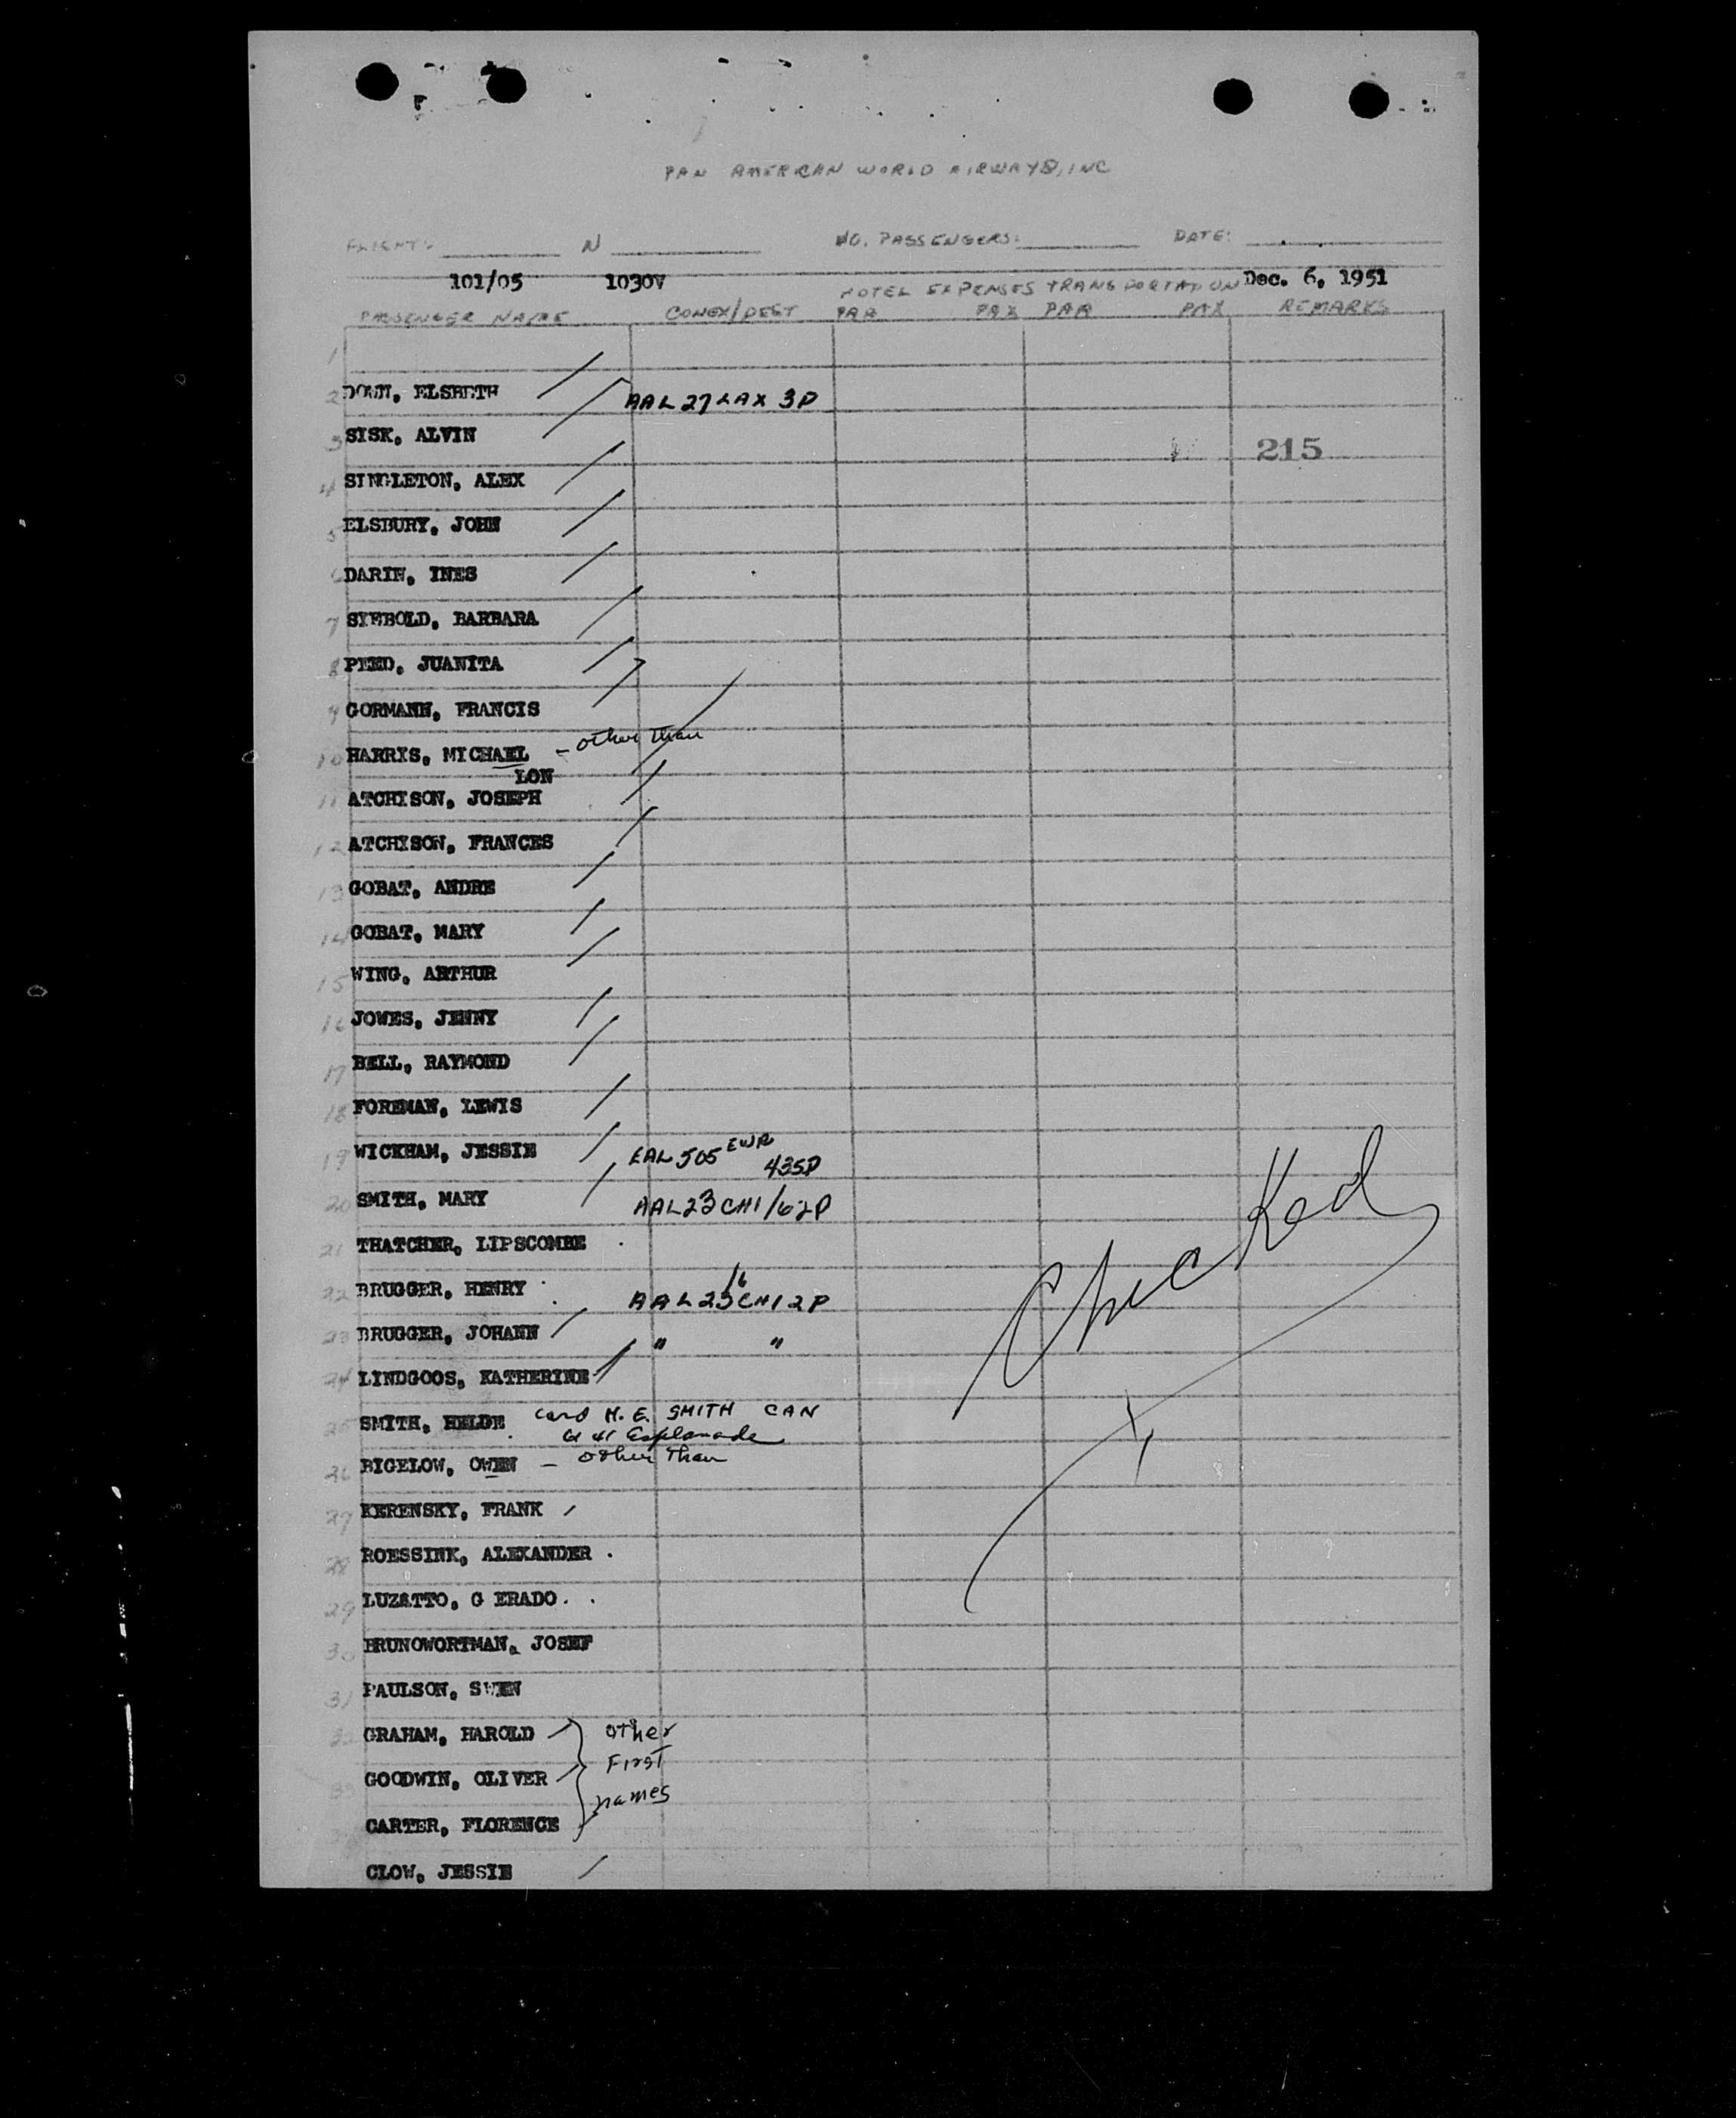 PAN AMERICAN WORLD AIRWAYS, INC
FLIGHT: N NO. PASSENGERS: DATE:
101/05 1030V Dec. 6, 1951
HOTEL EXPENSES TRANSPORTATION
PASSENGER NAME CONEX/DEST PAA PAX PAA PAX REMARKS
1
2 ELSBETH AAL 27 LAX 3P
3 SISK, ALVIN 215
4 SINGLETON, ALEX
5 ELSBURY, JOHN
6 DARIN, INES
7 SYEBOLD, BARBARA
8 PEED, JUANITA
9 GORMANN, FRANCIS
10 HARRIS, MICHAEL - other than
LON
11 ATCHISON, JOSEPH
12 ATCHISON, FRANCES
13 GOBAT, ANDRE
14 GOBAT, MARY
15 WING, ARTHUR
16 JOWES, JENNY
17 BELL, RAYMOND
18 FOREMAN, LEWIS
19 WICKHAM, JESSIE EAL 505 EWR 435P
20 SMITH, MARY AAL 23 CHI/
21 THATCHER, LIPSCOMBE
22 BRUGGER, HENRY AAL 23 CHI 2P
16
23 BRUGGER, JOHANN " "
24 LINDGOOS, KATHERINE
25 SMITH, HELDE card H. E. SMITH CAN
Esplanade
26 BIGELOW, OWEN - other than
27 KERENSKY, FRANK
28 ROESSINK, ALEXANDER
29 LUZATTO, G ERADO
30 BRUNOWORTMAN, JOSEF
31 PAULSON, SWEN
32 GRAHAM, HAROLD other
First
33 GOODWIN, OLIVER
names
CARTER, FLORENCE
CLOW, JESSIE
Checked